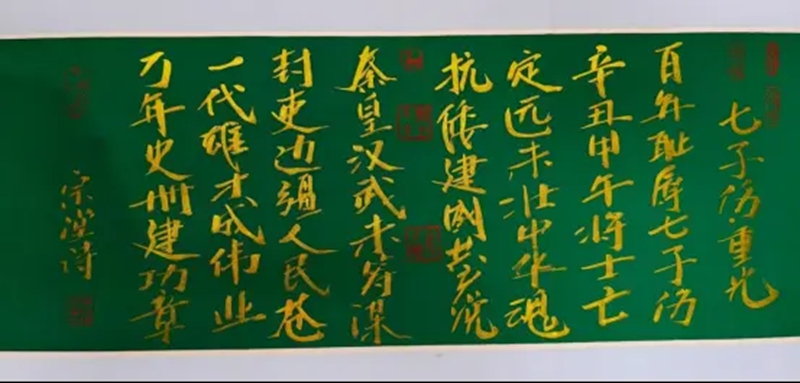 七子伤重光
百年耻辱七子伤
辛丑甲午将士亡
定远未壮中华魂
抗倭建国共产党
秦皇汉武未穷谋
封吏边疆人民苍
一代雄才成伟业
万年史册建功章
宗滢诗